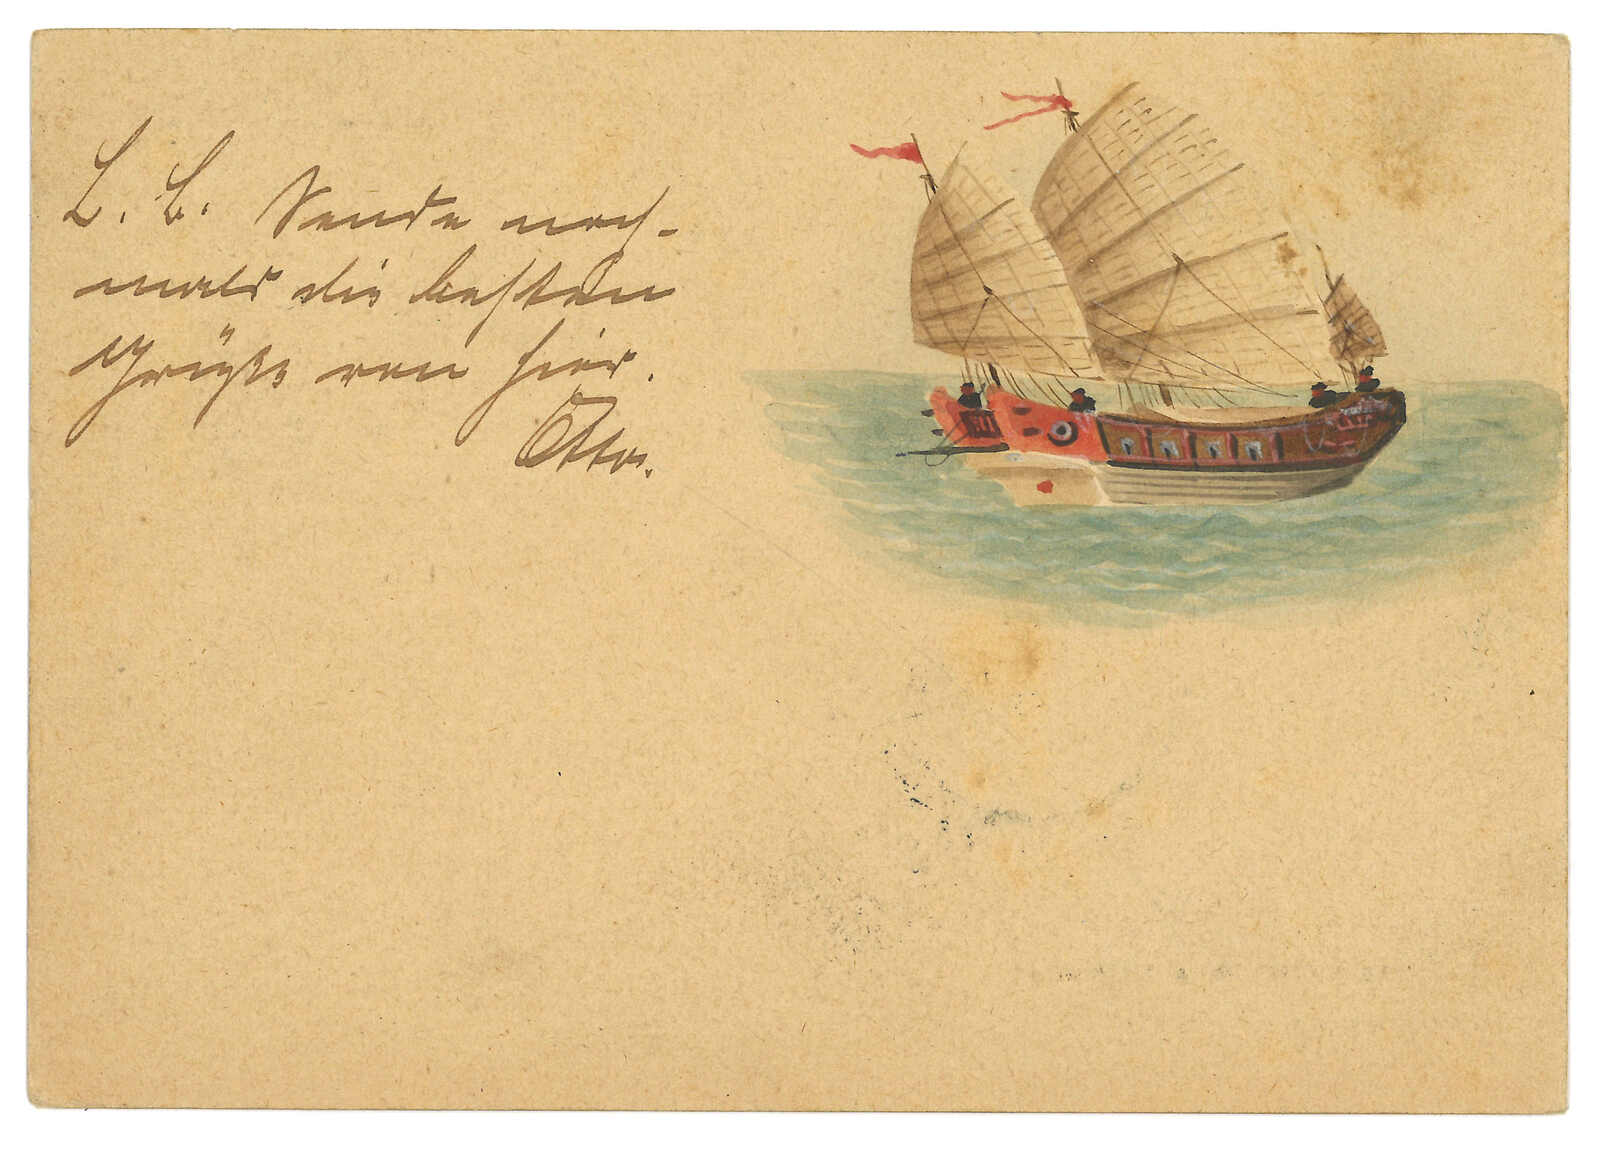 L. B. Sende noch-
mals die besten
Grüße von hier.
Otto.